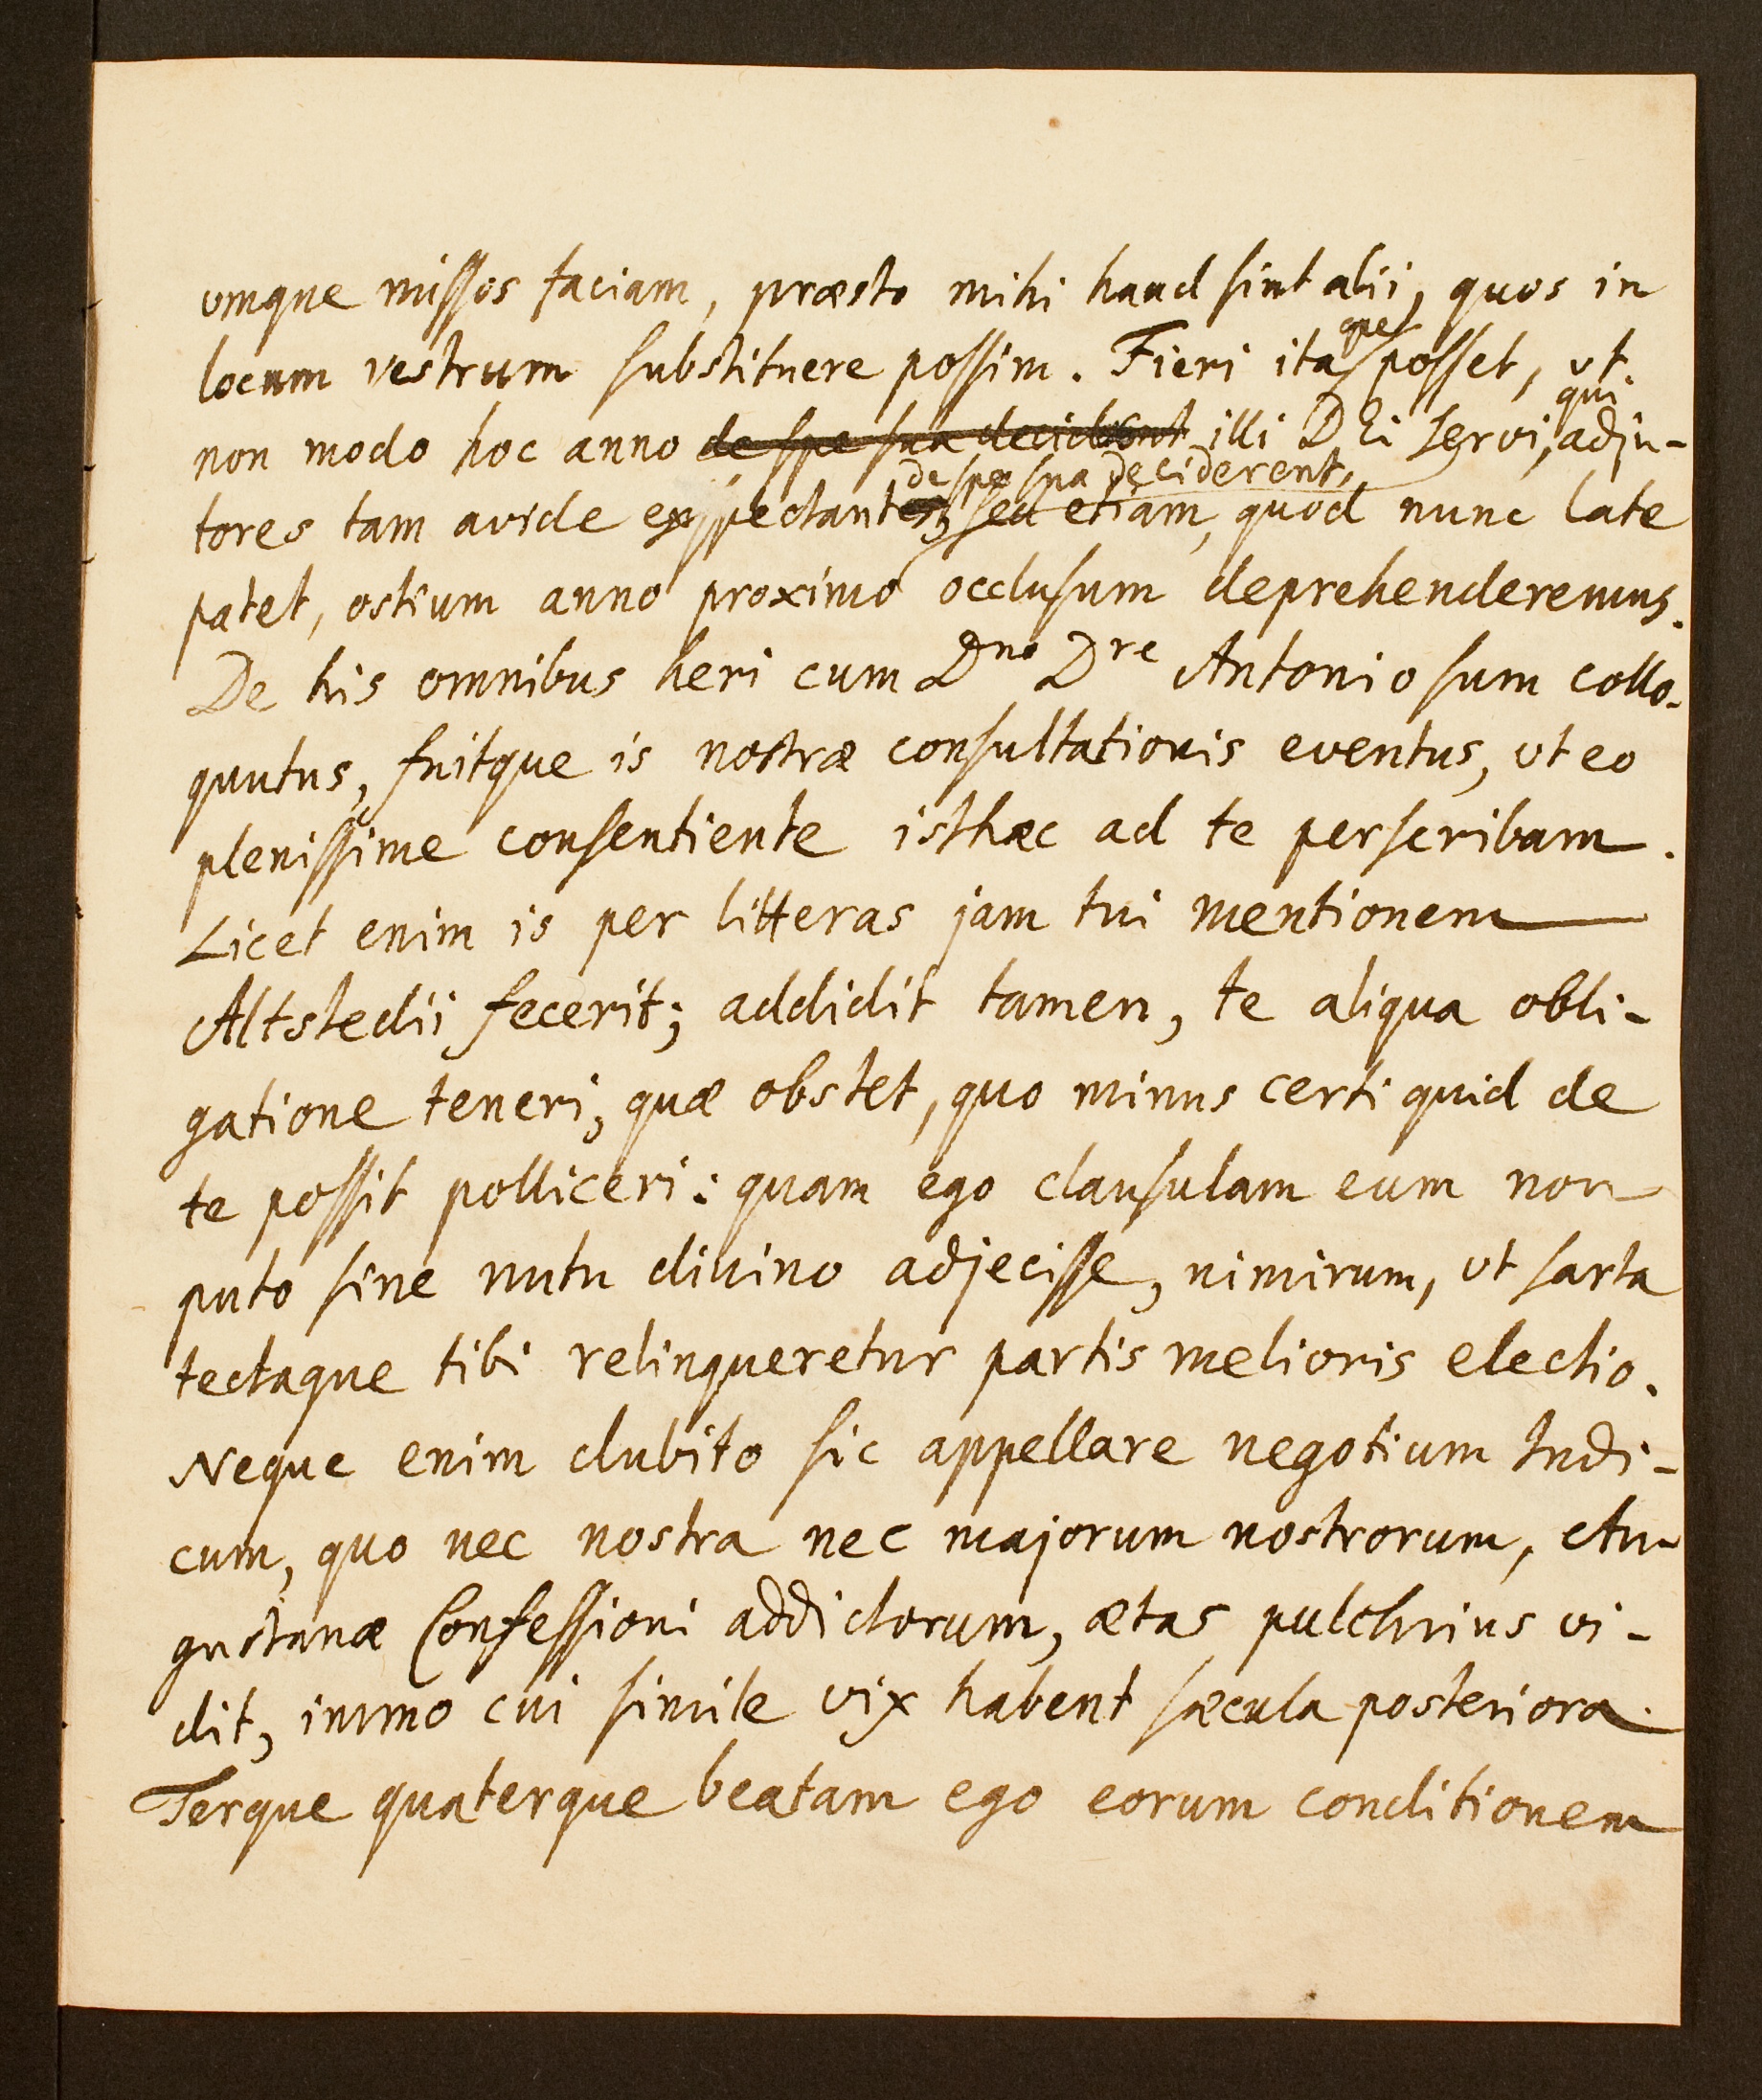 umque missos faciam, præsto mihi haud sint alii, quos in
locum vestrum substituere possim. Fieri itaque posset, ut
non modo hoc anno de spe sua deciderent illi DEi servi, qui adju-
tores tam avide exspectant, de spe sua deciderent, sed etiam, quod nunc late
patet, ostium anno proximo occlusum deprehenderemus.
De his omnibus heri cum Dno Dre Antonio sum collo-
quutus, fuitque is nostræ consultationis eventus, ut eo
plenissime consentiente isthæc ad te perscribam.
Licet enim is per litteras jam tui mentionem
Altstedii fecerit; addidit tamen, te aliqua obli-
gatione teneri, quæ obstet, quo minus certi quid de
te possit polliceri: quam ego clausulam eum non
puto sine nutu divino adjecisse, nimirum, ut sarta
tectaque tibi relinqueretur partis melioris electio.
Neque enim dubito sic appellare negotium Indi-
cum, quo nec nostra nec majorum nostrorum, Au-
gustanæ Confessioni addictorum, ætas pulchrius vi-
dit, immo cui simile vix habent sæcula posteriora.
Terque quaterque beatam ego eorum conditionem